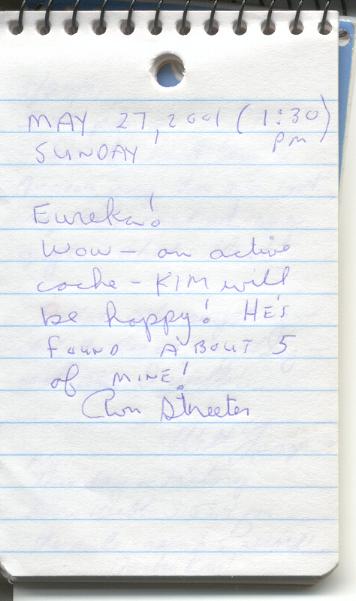 MAY 27, 2001 (1:30
SUNDAY pm)
Eureka!
Wow - an active
cache - KIM will
be happy! HE'S
found ABOUT 5
of MINE!
Ron Streeter